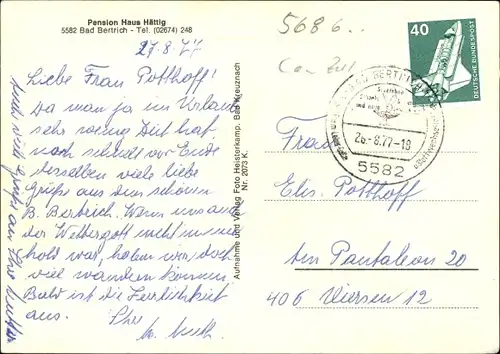 Pension Haus Hättig
5582 Bad Bertrich - Tel. (02674) 248
27.8.77
Liebe Frau Potthoff!
Da man ja im Urlaub
sehr wenig Zeit hat,
noch schnell vor Ende
desselben viele liebe
Grüße aus dem schönen
B. Bertrich. Wenn uns auch
der Wettergott nicht immer
hold war, haben wir doch
viel wandern können
Bald ist die Herrlichkeit
aus. Ihre
Auch viele Grüße an Ihre Mutter
Aufnahme und Verlag Foto Heisterkamp, Bad Kreuznach
Nr. 2073 K.
5686
40
DEUTSCHE BUNDESPOST
BAD BERTRICH
26.-8.77-18
5582
Frau
Elis. Potthoff
Am Pantaleon 20
406 Viersen 12